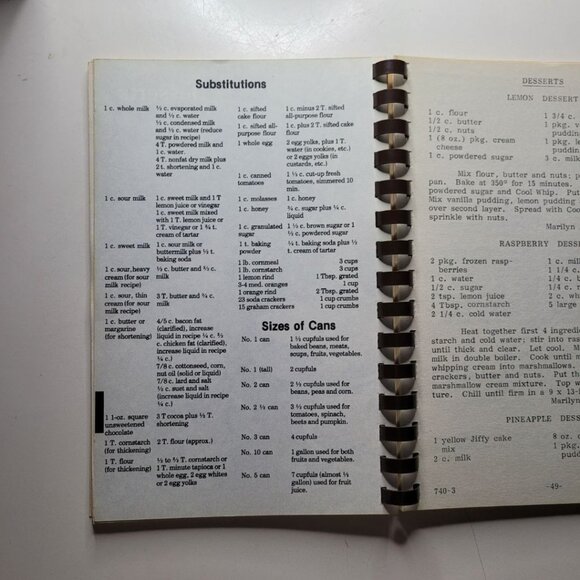 Substitutions
1 c. whole milk
½ c. evaporated milk
and ½ c. water
½ c. condensed milk
and ½ c. water (reduce
sugar in recipe)
4 T. powdered milk and
1 c. water.
4 T. nonfat dry milk plus
2 t. shortening and 1 c.
water
1 c. sour milk
1 c. sweet milk and 1 T
lemon juice or vinegar
1 c. sweet milk mixed
with 1 T. lemon juice or
1 T. vinegar or 1 ¾ t.
cream of tartar
1 c. sweet milk
1 c. sour milk or
buttermilk plus ½ t.
baking soda
1 c. sour, heavy
cream (for sour
milk recipe)
milk
1 c. sour, thin
cream (for sour
milk recipe)
3 T. butter and ¾ c.
milk
1 c. butter or
margarine
(for shortening)
4/5 c. bacon fat
(clarified), increase
liquid in recipe ¼ c.
c. chicken fat (clarified)
increase liquid in recipe
¼ c.)
7/8 c. cottonseed, corn,
nut oil (solid or liquid)
7/8 c. lard and salt
½ c. suet and salt
(increase liquid in recipe
¼ c.)
1 1-oz. square
unsweetened
chocolate
3 T cocoa plus ½ T.
shortening
1 T. cornstarch
(for thickening)
2 T. flour (approx.)
1 T. flour
(for thickening)
½ to ⅔ T. cornstarch or
1 T. minute tapioca or 1
whole egg, 2 egg whites
or 2 egg yolks
1 c. sifted
cake flour
1 c. minus 2 T. sifted
all-purpose flour
1 c. sifted all-
purpose flour
1 c. plus 2 T. sifted cake
flour
1 whole egg
2 egg yolks, plus 1 T.
water (in cookies, etc.)
or 2 eggs yolks (in
custards, etc.)
1 c. canned
tomatoes
1 ⅓ c. cut-up fresh
tomatoes, simmered 10
min.
1 c. molasses
1 c. honey
1 c. honey
¾ c. sugar plus ¼ c.
liquid
1 c. granulated
sugar
1 ⅓ c. brown sugar or 1
½ c. powdered sugar
1 t. baking
powder
¼ t. baking soda plus ½
t. cream of tartar
1 lb. cornmeal 3 cups
1 lb. cornstarch 3 cups
1 lemon rind 1 Tbsp. grated
3-4 med. oranges 1 cup
1 orange rind 2 Tbsp. grated
23 soda crackers 1 cup crumbs
15 graham crackers 1 cup crumbs
Sizes of Cans
No. 1 can
1 ⅓ cupfuls used for
baked beans, meats,
soups, fruits, vegetables.
No. 1 (tall)
2 cupfuls
No. 2 can
2 ½ cupfuls used for
beans, peas and corn.
No. 2 ½ can
3 ½ cupfuls used for
tomatoes, spinach,
beets and pumpkin.
No. 3 can
4 cupfuls
No. 10 can
1 gallon used for both
fruits and vegetables.
No. 5 can
7 cupfuls (almost ½
gallon) used for fruit
juice.
DESSERTS
LEMON DESSERT
1 c. flour
1/2 c. butter
1/2 c. nuts
1 (8 oz.) pkg. cream
cheese
1 c. powdered sugar
1 3/4 c.
1 pkg. v
puddin
1 pkg. le
puddin
3 c. milk
Mix flour, butter and nuts; p
pan. Bake at 350° for 15 minutes.
powdered sugar and Cool Whip. Put
Mix vanilla pudding, lemon pudding
over second layer. Spread with Coo
sprinkle with nuts.
Marilyn
RASPBERRY DESSE
2 pkg. frozen rasp-
berries
1 c. water
1/2 c. sugar
2 tsp. lemon juice
4 Tbsp. cornstarch
2 1/4 c. cold water
1 c. mil
1 1/4 c.
1/4 c. n
1/4 c. b
50 large
2 c. whi
Heat together first 4 ingredie
starch and cold water; stir into ras
until thick and clear. Let cool. M
milk in double boiler. Cook until m
whipping cream into marshmallows.
crackers, butter and nuts. Put th
marshmallow cream mixture. Top w
ture. Chill until firm in a 9 x 13-
Marilyn
PINEAPPLE DESS
1 yellow Jiffy cake
mix
2 c. milk
8 oz.
1 pkg.
pudd
740-3
-49-